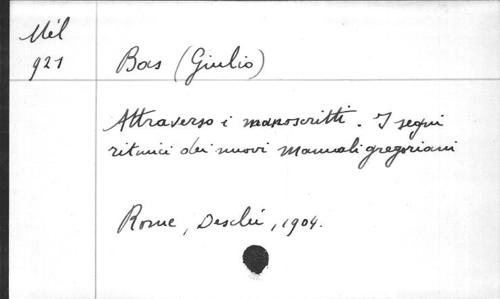 Mél
921
Bas (Giulio)
Attraverso i manoscritti. I segni
ritmici dei nuovi manuali gregoriani
Rome, Desclée, 1904.